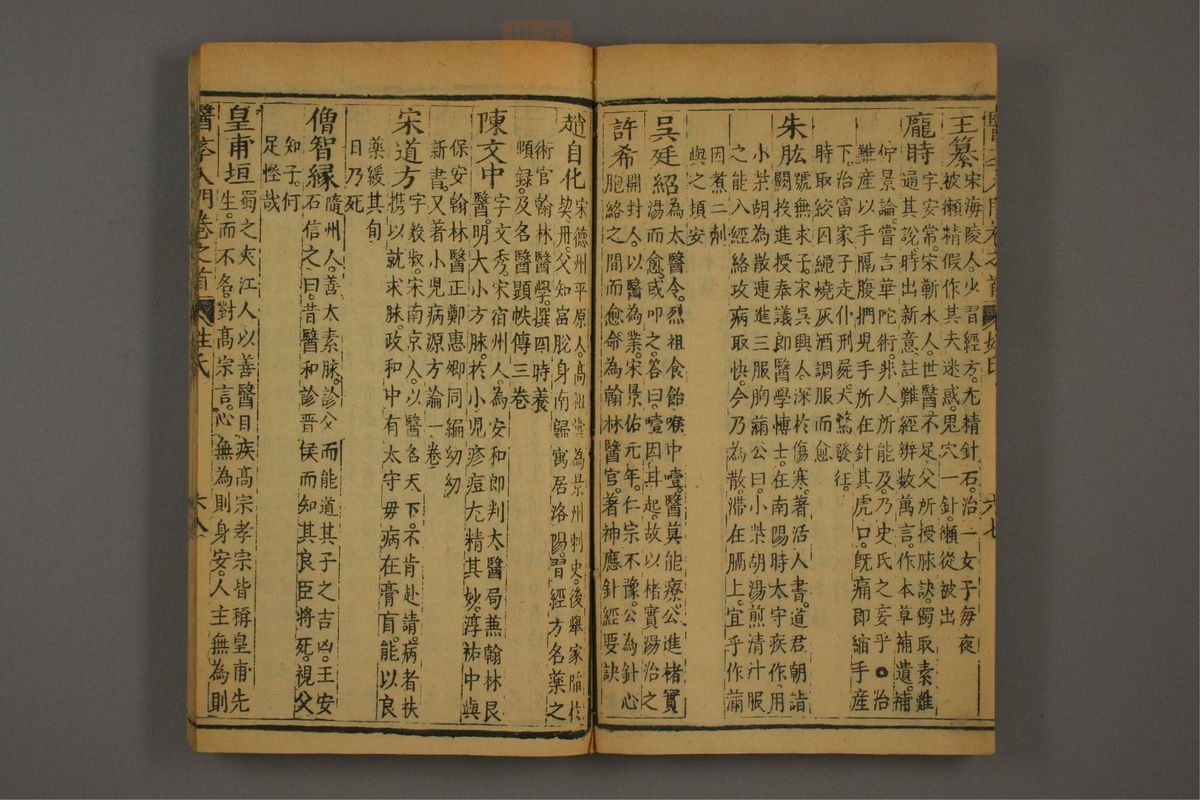 王纂宋海陵人。少習經方。尤精針石。治一女子每夜
被獺精假作其夫迷惑。鬼穴一針。獺從被出
龐時字安常。宋蘄水人。世醫不足父所授脉訣。獨取素難
通其說時出新意。註難經辨數萬言。作本草補遺。補
仲景論嘗言華陀術。非人所能及。乃史氏之妄乎。○治
難產以手隔腹捫児手所在針其虎口。旣痛即縮手產
下。治富家子走仆刑屍。大驚發狂。
時取絞囚繩燒灰酒調服而愈
朱肱號無求子。宋吳興人。深於傷寒。著活人書。道君朝詣
闕投進授奉議郎醫學博士。在南陽時太守疾作。用
小柴胡為散連進三服胸滿公曰。小柴胡湯煎清汁服
之能入經絡攻病取快。今乃為散。滯在膈上。宜乎作滿
因煮二劑
與之頓安
吳廷紹為太醫令。烈祖食飴喉中噎。醫莫能療。公進楮實
湯而愈。或叩之。答曰。噎因甘起。故以楮實湯治之
許希開封人。以醫為業。宋景佑元年。仁宗不豫。公為針心
胞絡之間而愈命為翰林醫官。著神應針經要訣
趙自化宋德州平原人。高祖嘗為景州刺史。後舉家陷於
契丹。父知富脫身南歸寓居洛陽。習經方名藥之
術官翰林醫學。撰四時養
頤錄。及名醫顯帙傳三卷
陳文中字文秀。宋宿州人。為安和郎判太醫局兼翰林良
醫。明大小方脉。於小兒疹痘尤精其妙。淳祐中與
保安翰林醫正鄭惠卿同編幼幼
新書。又著小兒病源方論一卷
宋道方字毅叔。宋南京人。以醫名天下。不肯赴請。病者扶
携以就求脉。政和中有太守母病在膏肓。能以良
藥緩其旬
日乃死
僧智緣隋州人。善太素脉。診父而能道其子之吉凶。王安
石信之曰。昔醫和診晋侯而知其良臣將死。視父
知子。何
足怪哉
皇甫垣蜀之夾江人。以善醫目疾高宗孝宗皆稱皇甫先
生。而不名。對高宗言。心無為則身安。人主無為則
醫李入門卷之首 姓氏 六八